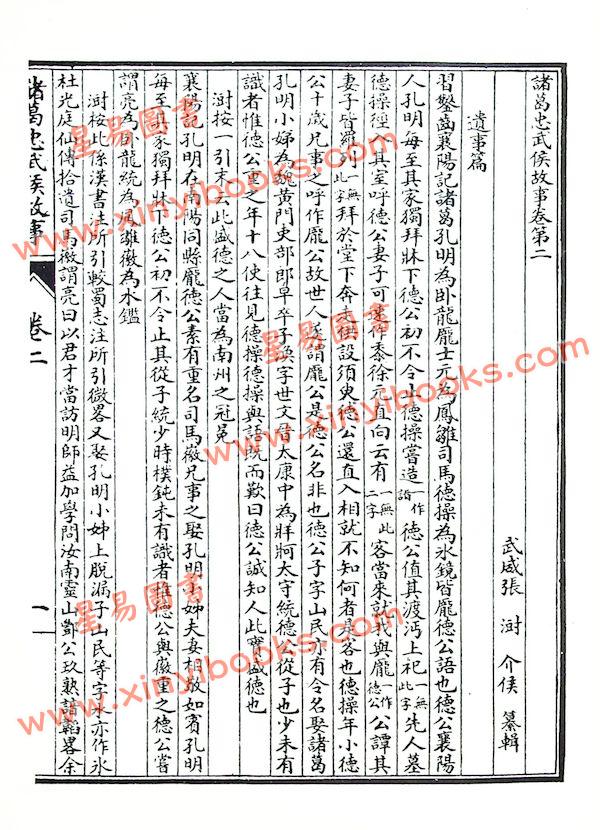 諸葛忠武侯故事卷第二
武威張澍介侯纂輯
遺事篇
習鑿齒襄陽記諸葛孔明為卧龍龐士元為鳳雛司馬德操為水鏡皆龐德公語也德公襄陽
人孔明每至其家獨拜牀下德公初不令止德操嘗造一作詣德公值其渡沔上祀一無此字先人墓
德操徑入其室呼德公妻子可速作黍徐元直向云有一無此二字客當來就我與龐一作德公公譚其
妻子皆羅列一無此字拜於堂下奔走供設須臾德公還直入相就不知何者是客也德操年小德
公十歲兄事之呼作龐公故世人遂謂龐公是德公名非也德公子字山民亦有令名娶諸葛
孔明小姊為魏黃門吏部郎早卒子渙字世文晉太康中為牂牁太守統德公從子也少未有
識者惟德公重之年十八使往見德操德操與語既而歎曰德公誠知人此實盛德也
澍按一引末云此盛德之人當為南州之冠冕
襄陽記孔明在南陽同縣龐德公素有重名司馬徽兄事之娶孔明小姊夫妻相敬如賓孔明
每至其家獨拜牀下德公初不令止其從子統少時樸鈍未有識者惟德公與徽重之德公嘗
謂亮為卧龍統為鳳雛徽為水鑑
澍按此係漢書注所引較蜀志注所引微畧又娶孔明小姊上脫漏子山民等字水亦作氷
杜光庭仙傳拾遺司馬徽謂亮曰以君才當訪明師益加學問汝南靈山酆公玖熟諳韜畧余
諸葛忠武侯故事
卷二
一
星易图書
www.xinyibooks.com
星易图書
www.xinyibooks.com
星易图書
www.xinyibooks.com
星易图書
www.xinyibooks.com